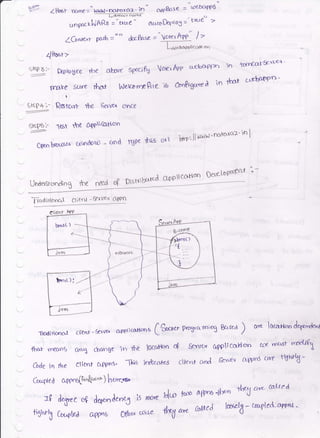 <Host name="www.nataraz.in" appBase="webapps"
unpackWARs="true" autoDeploy="true">
<Context path="" docBase="VoterApp" />
</Host>
Step3:- Deploy the above specify VoterApp webappn in tomcat server.
make sure that WelcomeFile is configured in that webappn.
Step4:- Restart the Server once
Step5:- Test the application
Open browser window and type this url http://www.nataraz.in/
Understanding the need of Distributed application Development :-
Traditional client-server appn
Client App
Server App
network
jvm
jvm
jvm
Traditional client-server applications (Socket programming Based) are location dependent
that means any change in the location of server application we must modify
code in the client appns. This indicates client and server appns are tightly-
coupled appns
If degree of dependency is more b/w two appns then they are called
tightly coupled appns other case they are called loosely-coupled appns.